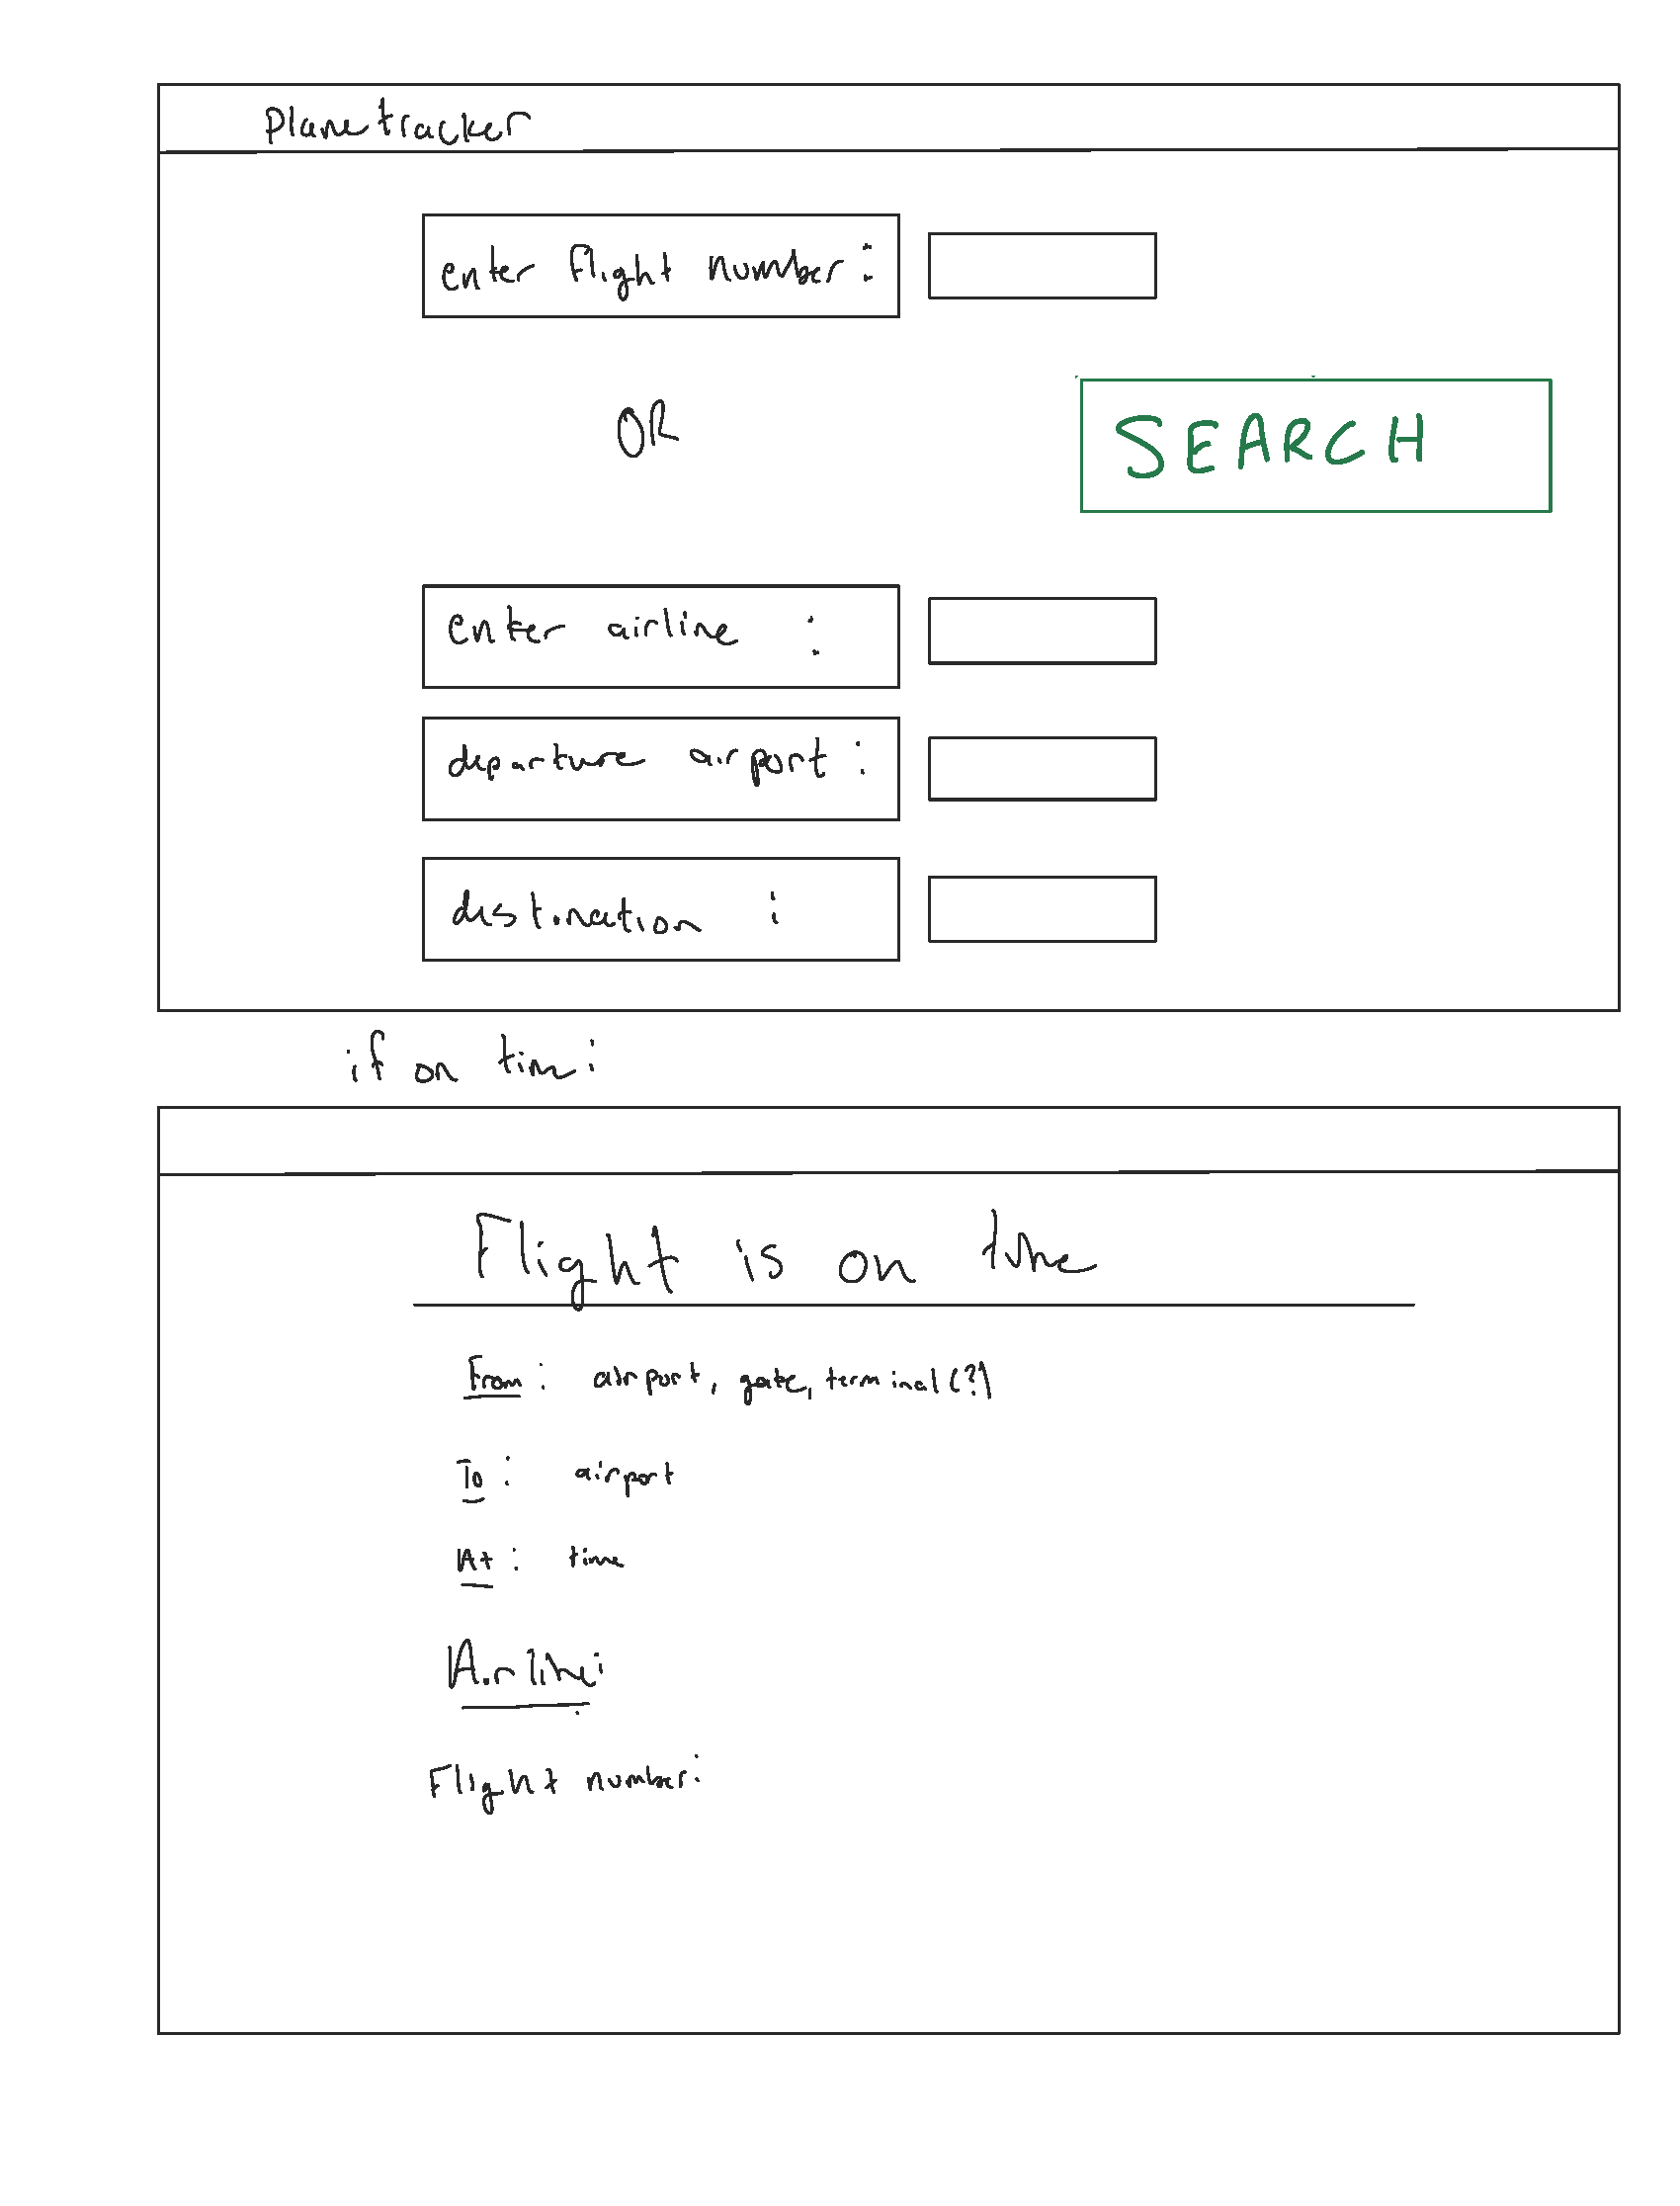 planetracker
enter flight number:
OR
SEARCH
enter airline :
departure airport :
destination :
if on tim :
Flight is on time
From : airport, gate, terminal (?)
To : airport
At : time
Airline:
Flight number: